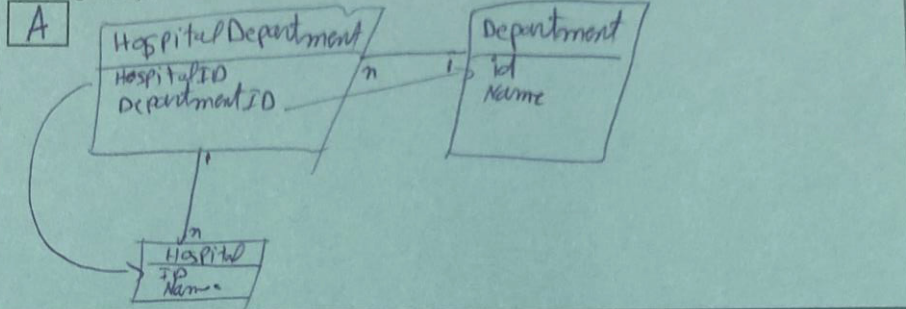 A
HospitalDepartment
HospitalID
DepartmentID
n
1
Department
id
Name
1
n
Hospital
ID
Name